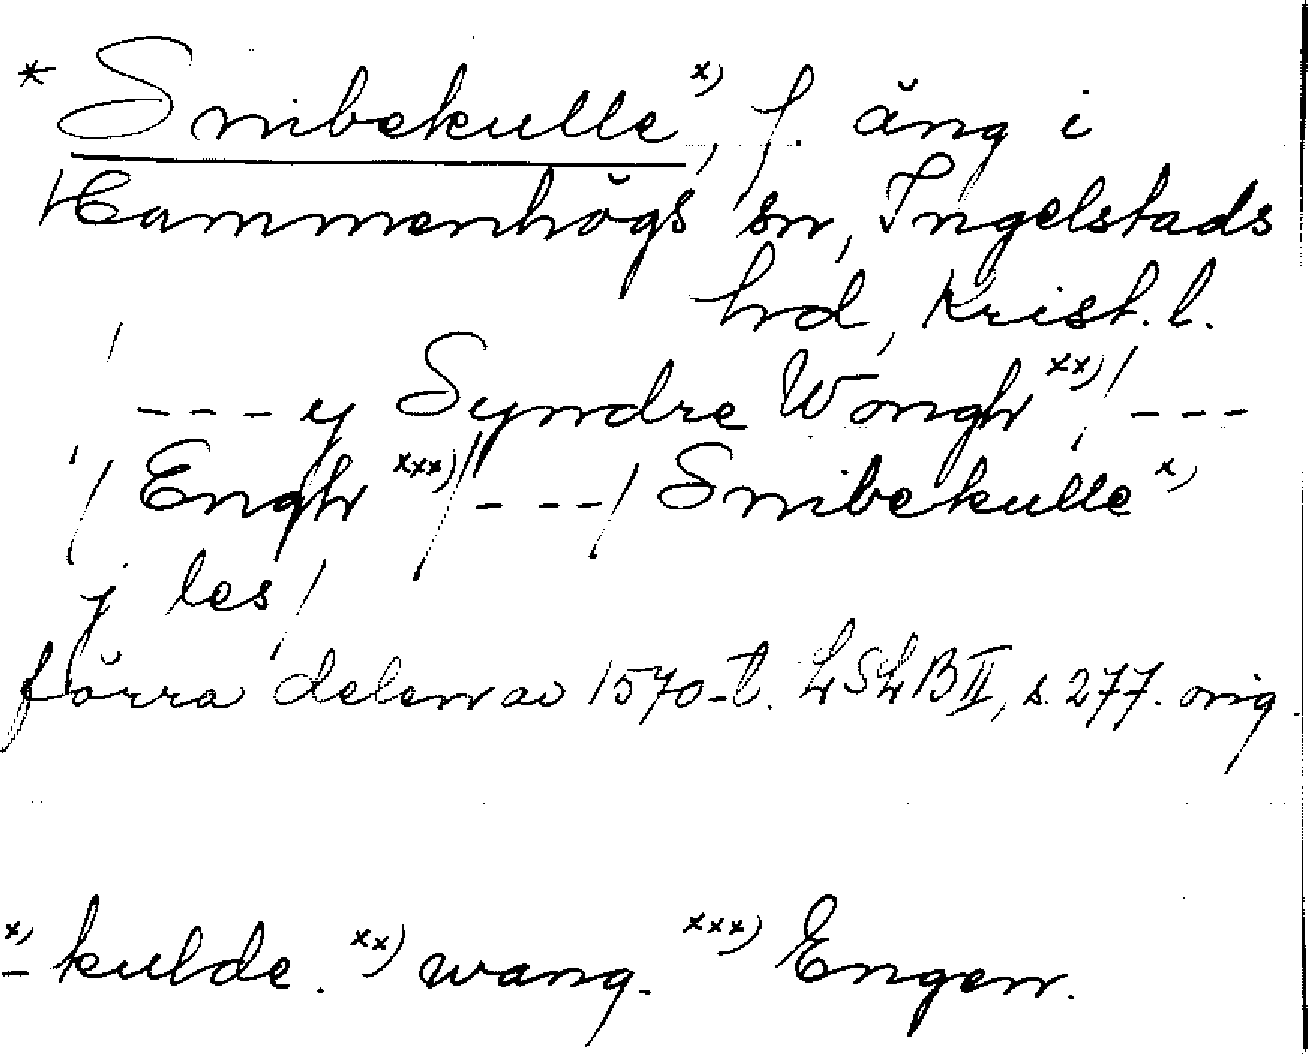 * Snibekulle x), f. äng i
Hammenhögs sn, Ingelstads
hrd, Krist. l.
--- y Syndre Wongh xx) / ---
/ Engh xxx) / --- / Snibekulle x)
j les /
förra delen av 1570-t. LSLB II, s. 277. orig.
x) -kulde. xx) wang. xxx) Engen.